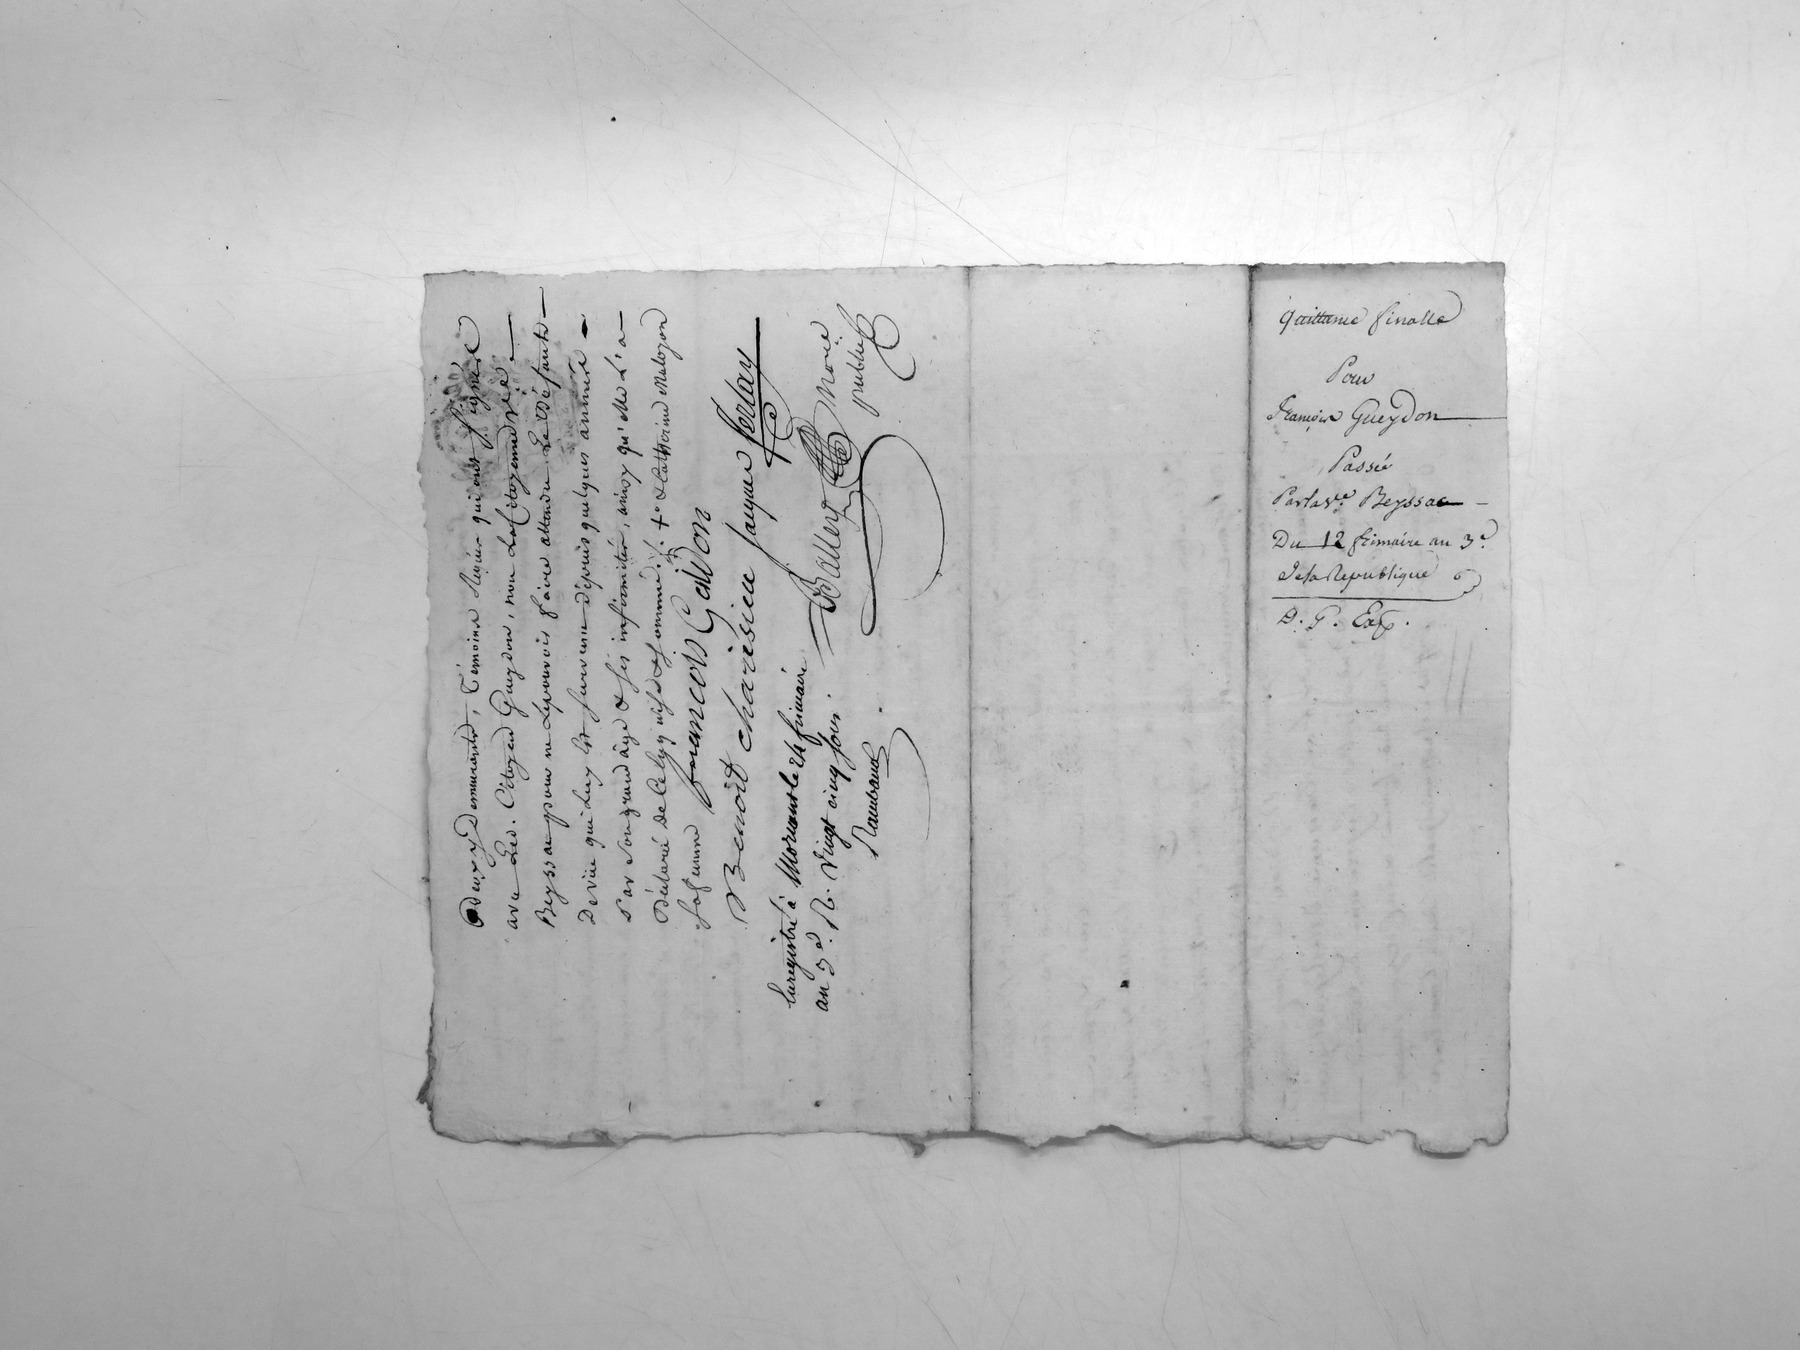 deux y Demeurants, Témoins Requis qui ont Signé
avec Led. Citoyen Gueydon, non La Citoyenne v.e
Beyssac pour ne Lepouvoir faire attendu Le Défaut
De vüe qui Luy Est Survenu Dépuis quelques années
Par Son grand âge & Ses infirmités, ainsy qu'elle L'a
Déclaré De Ce Enquise & Sommée ./. + & Catherine Malozon
Sa femme
francois GaiDon
Benoit charesieu Jacque ferlay
Ballery No.re public
Enregistré à Mornant le 24 frimaire
an 3.e R. Vingt cinq Sous.
Raubaud
Quittance finalle
Pour
François Gueydon
Passée
Par la v.e Beyssac
Du 12 frimaire an 3.e
De la Republique
D. G. Exp.